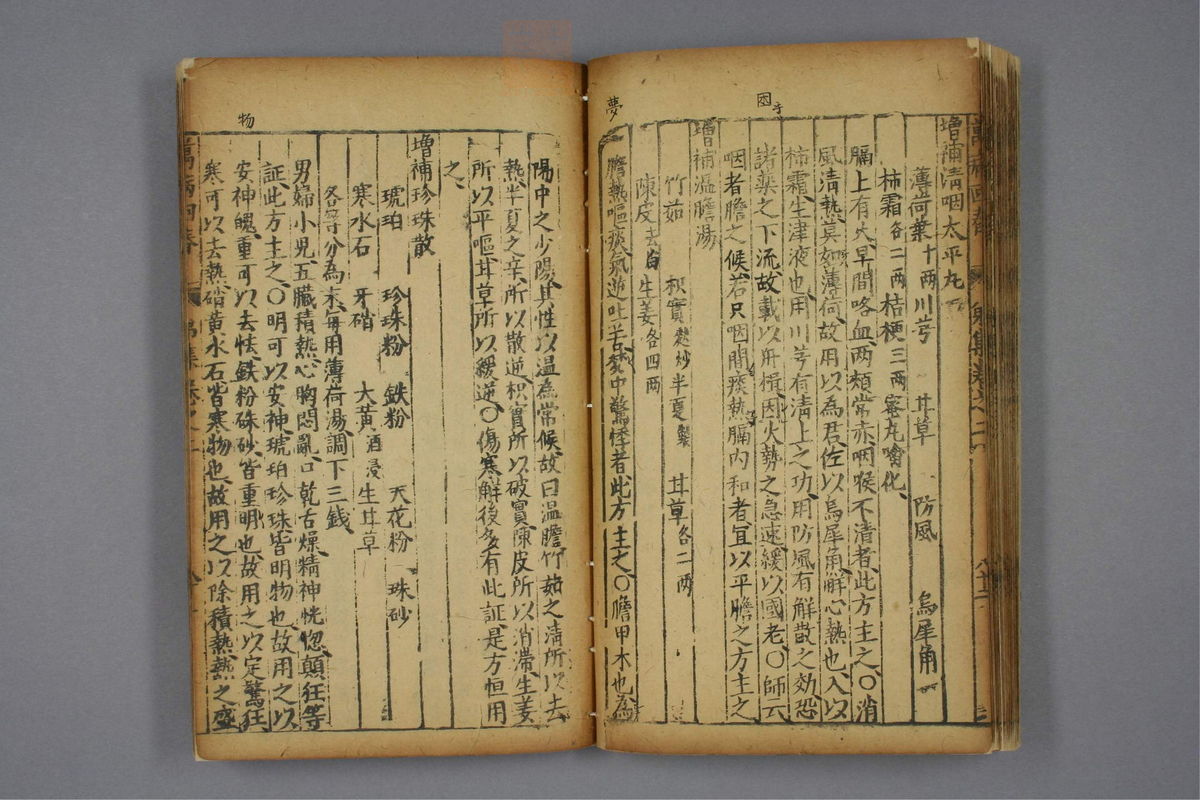 增補清咽太平丸
薄荷葉十兩川芎 甘草 防風 烏犀角
柿霜各二兩桔梗三兩蜜丸噙化
膈上有火早間咯血兩頰常赤咽喉不清者此方主之〇消
風清熱莫如薄荷故用以為君佐以烏犀角解心熱也入以
柿霜生津液也用川芎有清上之功用防風有解散之効恐
諸藥之下流故載以舟楫因火勢之急速緩以國老〇師云
咽者膽之候若只咽間痰熱膈內和者宜以平膽之方主之
增補溫膽湯
竹茹 枳實麸炒半夏製 甘草各二兩
陳皮去白 生姜各四兩
膽熱嘔痰氣逆吐苦夢中驚悸者此方主之〇膽甲木也為
夢
物
陽中之少陽其性以温為常候故曰温膽竹茹之清所以去
熱半夏之辛所以散逆枳實所以破實陳皮所以消滯生姜
所以平嘔甘草所以緩逆〇傷寒解後多有此証是方恒用
之
增補珍珠散
琥珀 珍珠粉 鉄粉 天花粉 珠砂
寒水石 牙硝 大黃酒浸生甘草
各等分為末每用薄荷湯調下三錢
男婦小兒五臓積熱心胸悶亂口乾舌燥精神恍惚顛狂等
証此方主之〇明可以安神琥珀珍珠皆明物也故用之以
安神魄重可以去怯鉄粉硃砂皆重明也故用之以定驚狂
寒可以去熱硝黃水石皆寒物也故用之以除積熱熱之盛